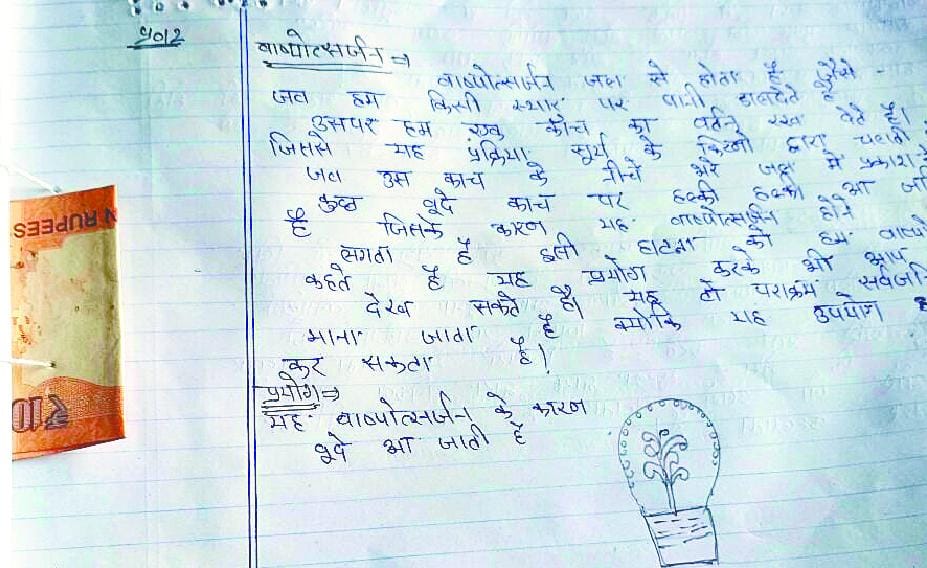 प्र०12
वाष्पोत्सर्जन ⇒
वाष्पोत्सर्जन जल से होता है जैसे -
जब हम किसी स्थान पर पानी डालदेते है
उसपर हम एक काँच का बर्तन रख देते है।
जिससे यह प्रक्रिया सूर्य के किरणो द्वारा चलती
जब उस काच के नीचे भरे जल मे प्रकाश
कुछ बूदे काच पर हल्की हल्की आ
है जिसके कारण यह वाष्पोत्सर्जन होने
लगता है इसी घटना को हम
कहते है यह प्रयोग करके भी आप
देख सकते है। यह
माना जाता है क्योकि यह उपयोग
कर सकता है।
प्रयोग ⇒
यह वाष्पोत्सर्जन के कारण
बूदे आ जाती है
N RUPEES
₹10